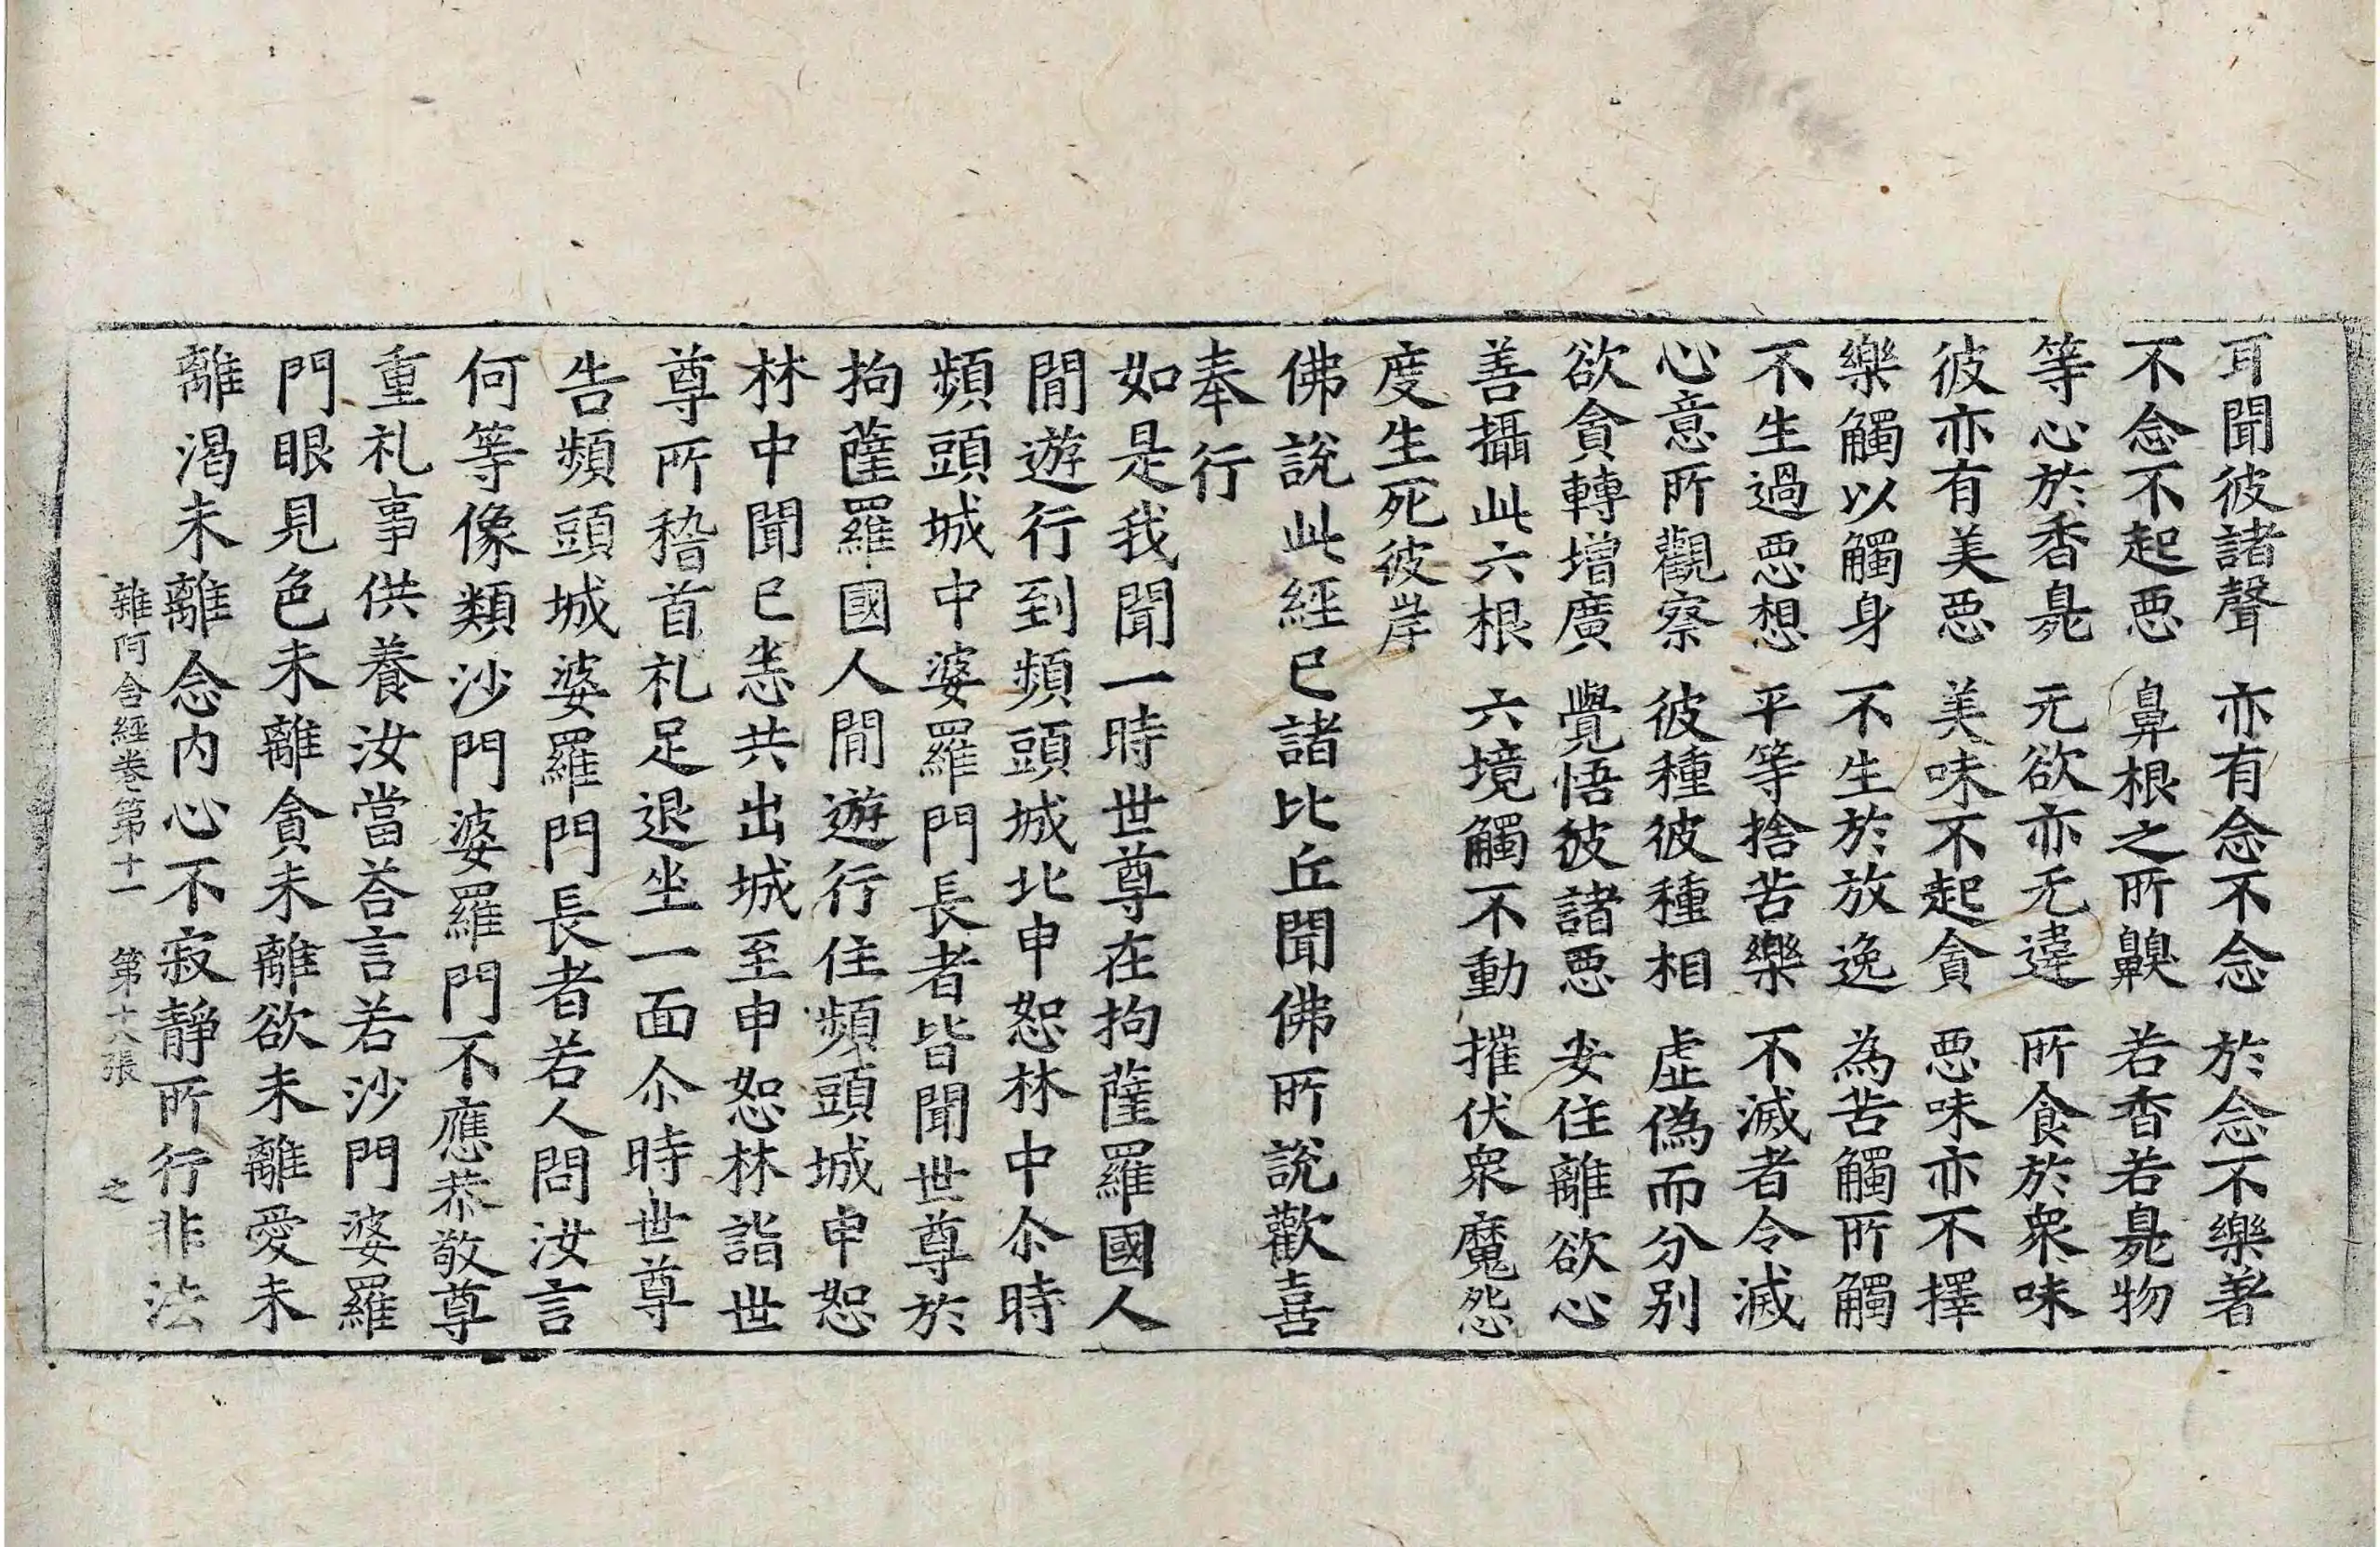 耳聞彼諸聲　亦有念不念　於念不樂著
不念不起惡　鼻根之所齅　若香若臰物
等心於香臰　无欲亦无違　所食於衆味
彼亦有美惡　美味不起貪　惡味亦不擇
樂觸以觸身　不生於放逸　為苦觸所觸
不生過惡想　平等捨苦樂　不滅者令滅
心意所觀察　彼種彼種相　虛偽而分别
欲貪轉增廣　覺悟彼諸惡　安住離欲心
善攝此六根　六境觸不動　摧伏衆魔怨
度生死彼岸
佛說此經已諸比丘聞佛所說歡喜
奉行
如是我聞一時世尊在拘薩羅國人
閒遊行到頻頭城北申恕林中尒時
頻頭城中婆羅門長者皆聞世尊於
拘薩羅國人閒遊行住頻頭城申恕
林中聞已悉共出城至申恕林詣世
尊所稽首礼足退坐一面尒時世尊
告頻頭城婆羅門長者若人問汝言
何等像類沙門婆羅門不應恭敬尊
重礼事供養汝當荅言若沙門婆羅
門眼見色未離貪未離欲未離愛未
離渴未離念内心不寂靜所行非法
雜阿含經卷第十一　第十八張　之